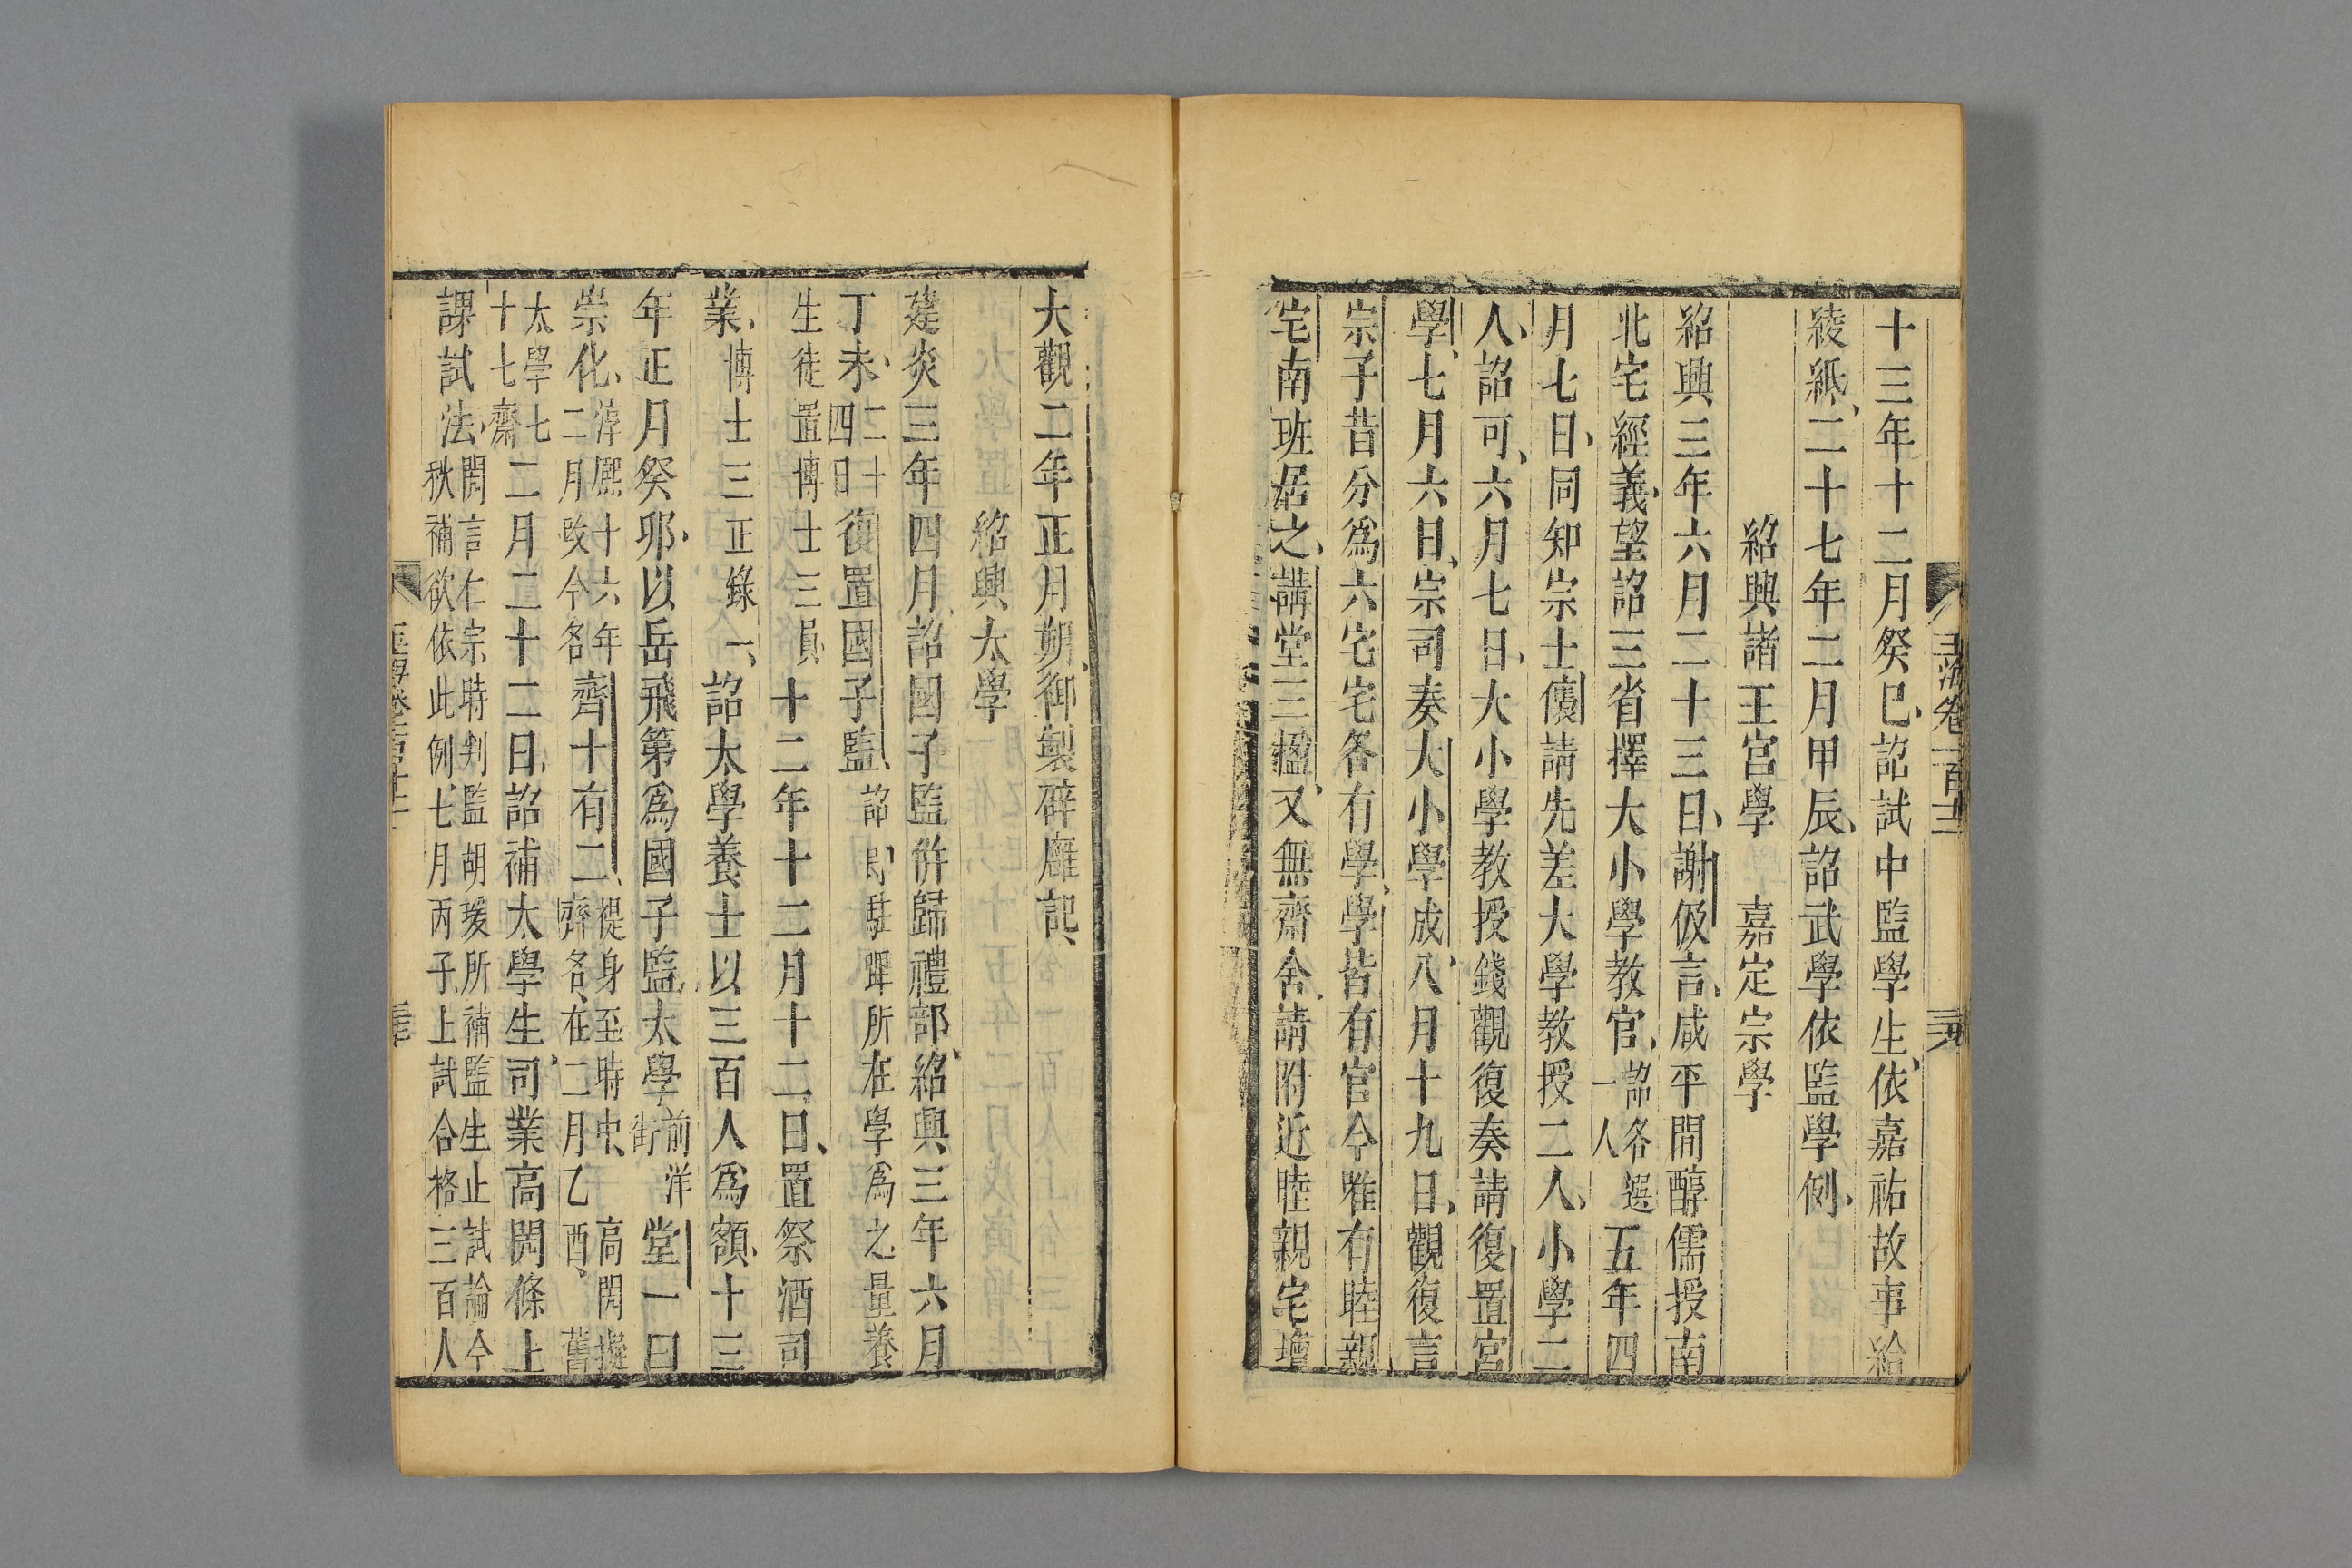 玉海卷一百十二
十三年十二月癸巳詔試中監學生依嘉祐故事給
綾紙二十七年二月甲辰詔武學依監學例
紹興諸王宮學 嘉定宗學
紹興三年六月二十三日謝伋言咸平間醇儒授南
北宅經義望詔三省擇大小學教官詔各選一人五年四
月七日同知宗士㒟請先差大學教授二人小學二
人詔可六月七日大小學教授錢觀復奏請復置宮
學七月六日宗司奏大小學成八月十九日觀復言
宗子昔分爲六宅宅各有學學皆有官今唯有睦親
宅南班居之講堂三楹又無齋舍請附近睦親宅增
大觀二年正月朔御製辟廱記
紹興太學
建炎三年四月詔國子監併歸禮部紹興三年六月
丁未二十四日復置國子監詔即駐蹕所在學爲之量養
生徒置博士三員十二年十二月十二日置祭酒司
業博士三正錄一詔太學養士以三百人爲額十三
年正月癸卯以岳飛第爲國子監太學前洋街堂一曰
崇化淳熙十六年二月改今名齋十有二禔身至時中齋名在二月乙酉高閌擬舊
太學七十七齋二月二十二日詔補太學生司業高閌條上
課試法閌言仁宗時判監胡瑗所補監生止試論今秋補欲依此例七月丙子上試合格三百人